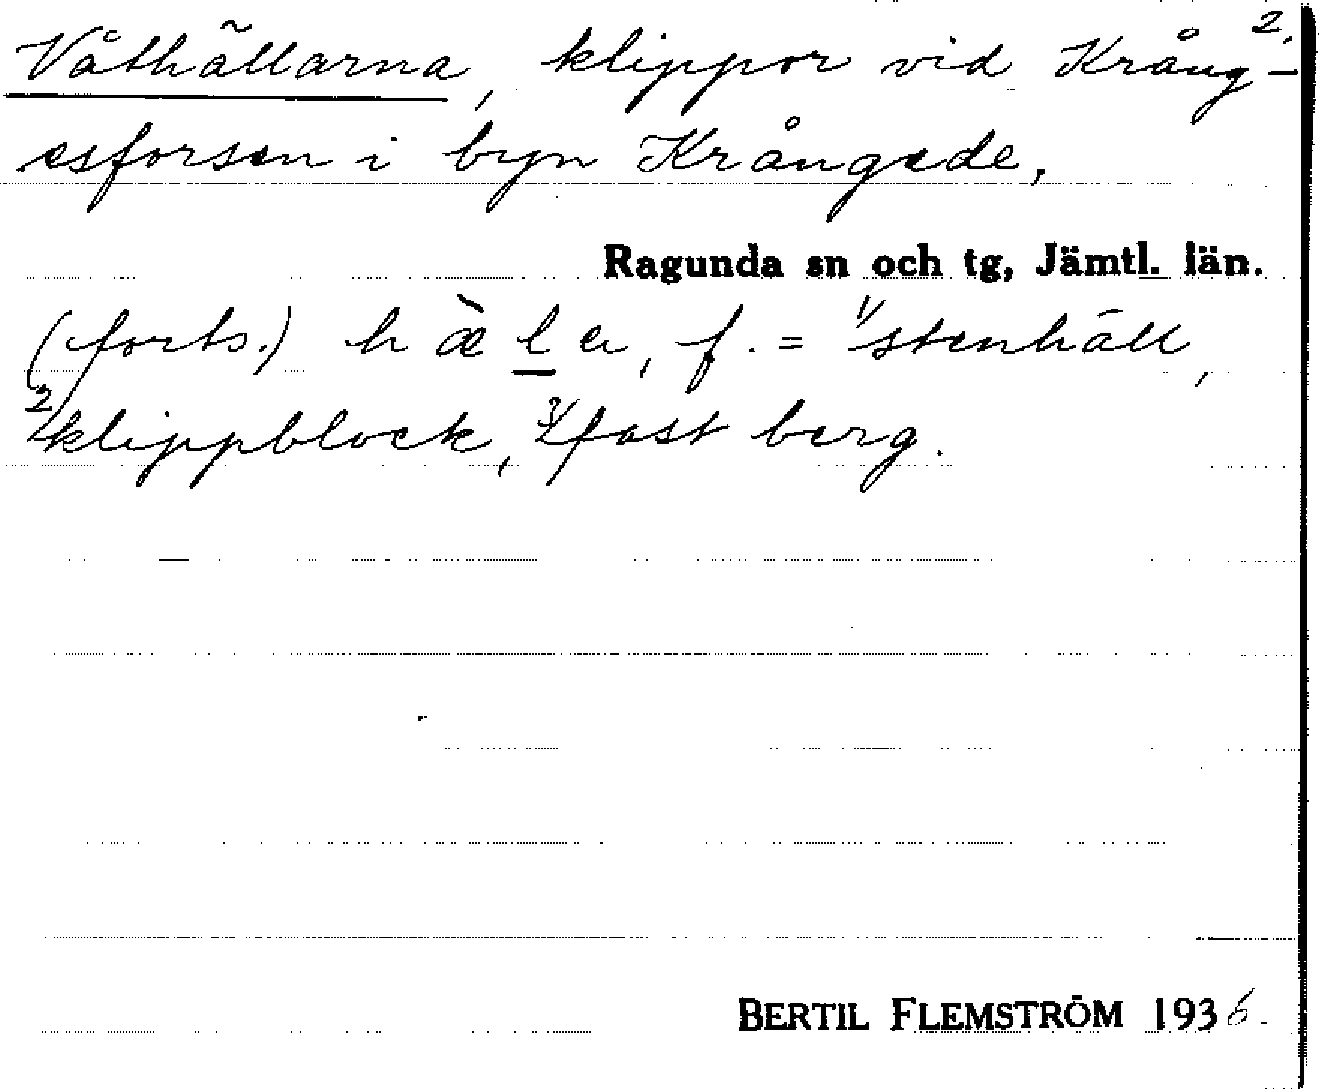 2.
Våthällarna, klippor vid Krång-
esforsen i byn Krångede,
Ragunda sn och tg, Jämtl. län.
(forts.) h æ̀ l̲ a, f. = 1/ stenhäll,
2/ klippblock, 3/ fast berg.
BERTIL FLEMSTRÖM 1936.